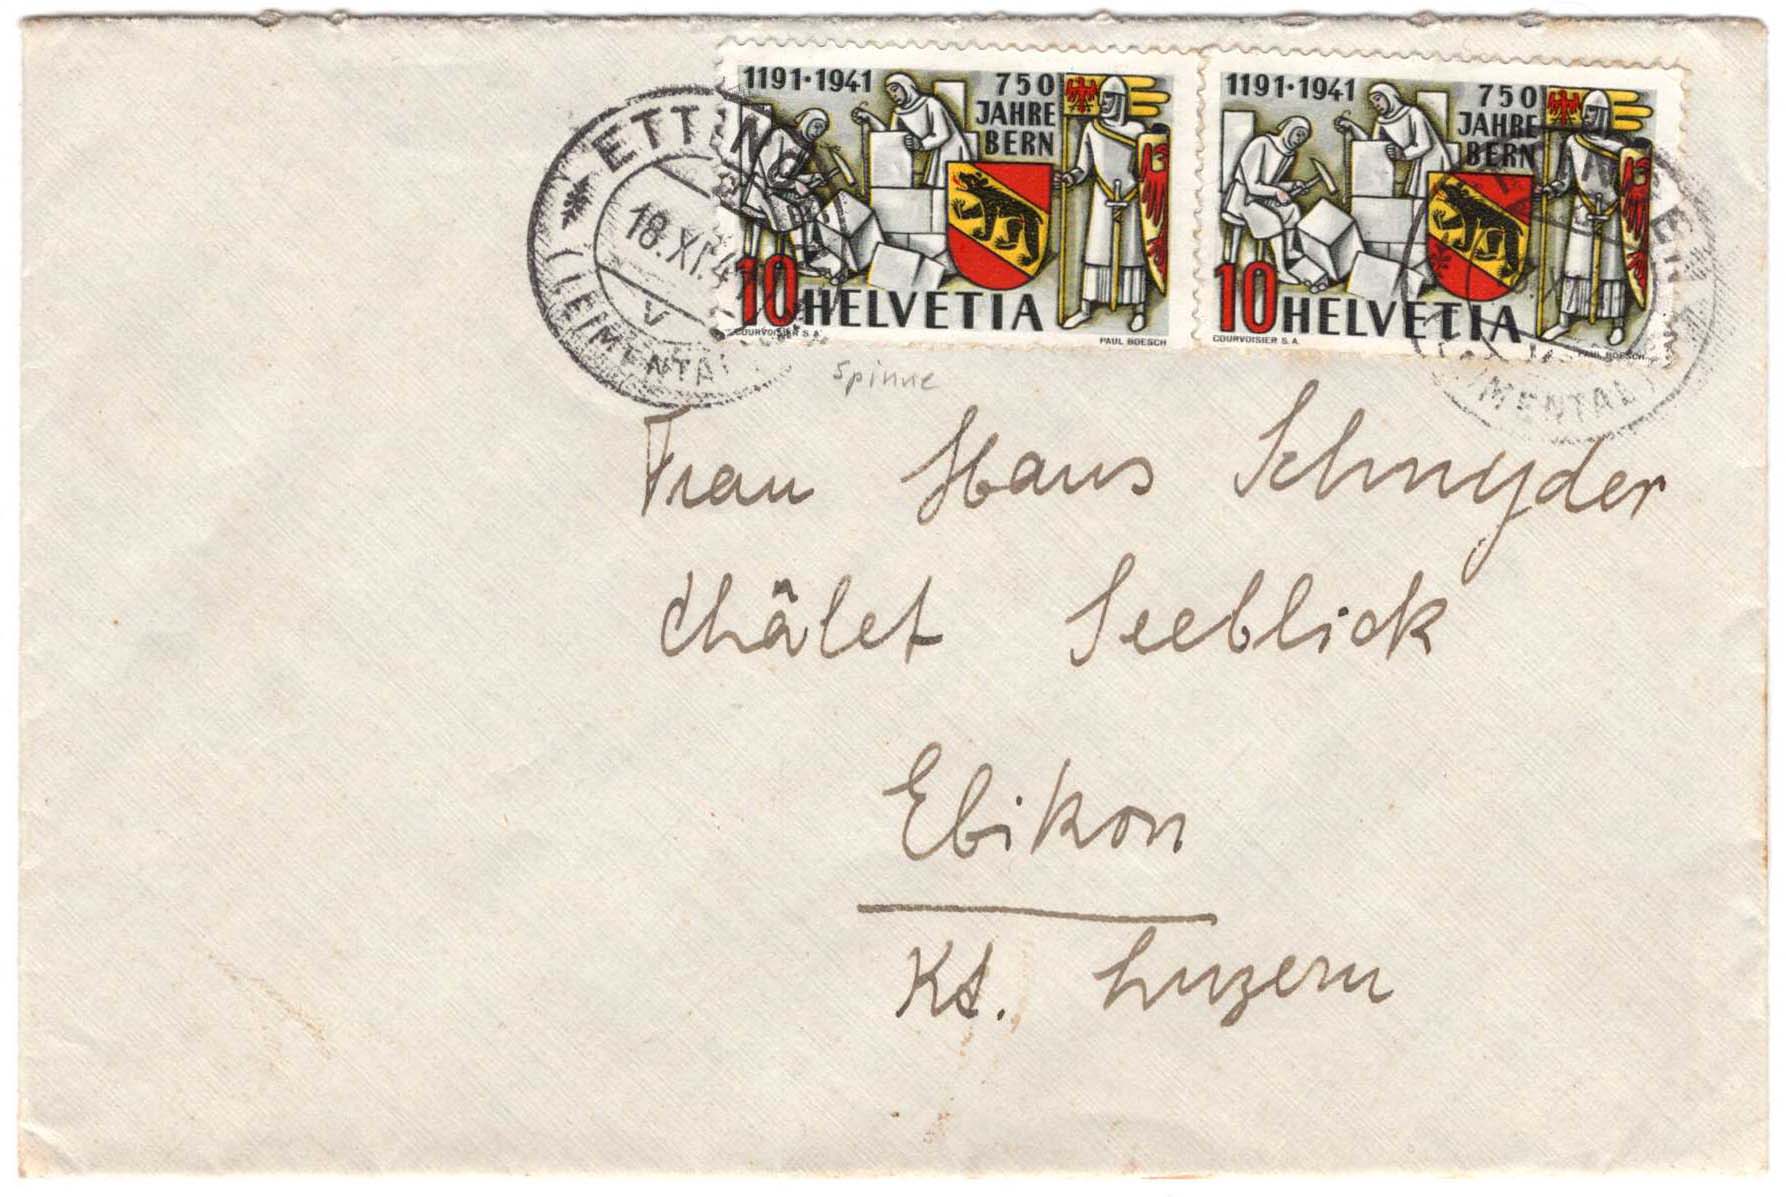 1191·1941
750
JAHRE
BERN
10 HELVETIA
COURVOISIER S.A.
PAUL BOESCH
1191·1941
750
JAHRE
BERN
10 HELVETIA
COURVOISIER S.A.
PAUL BOESCH
18.XI.4
V
Spinne
Frau Hans Schnyder
Châlet Seeblick
Ebikon
Kt. Luzern